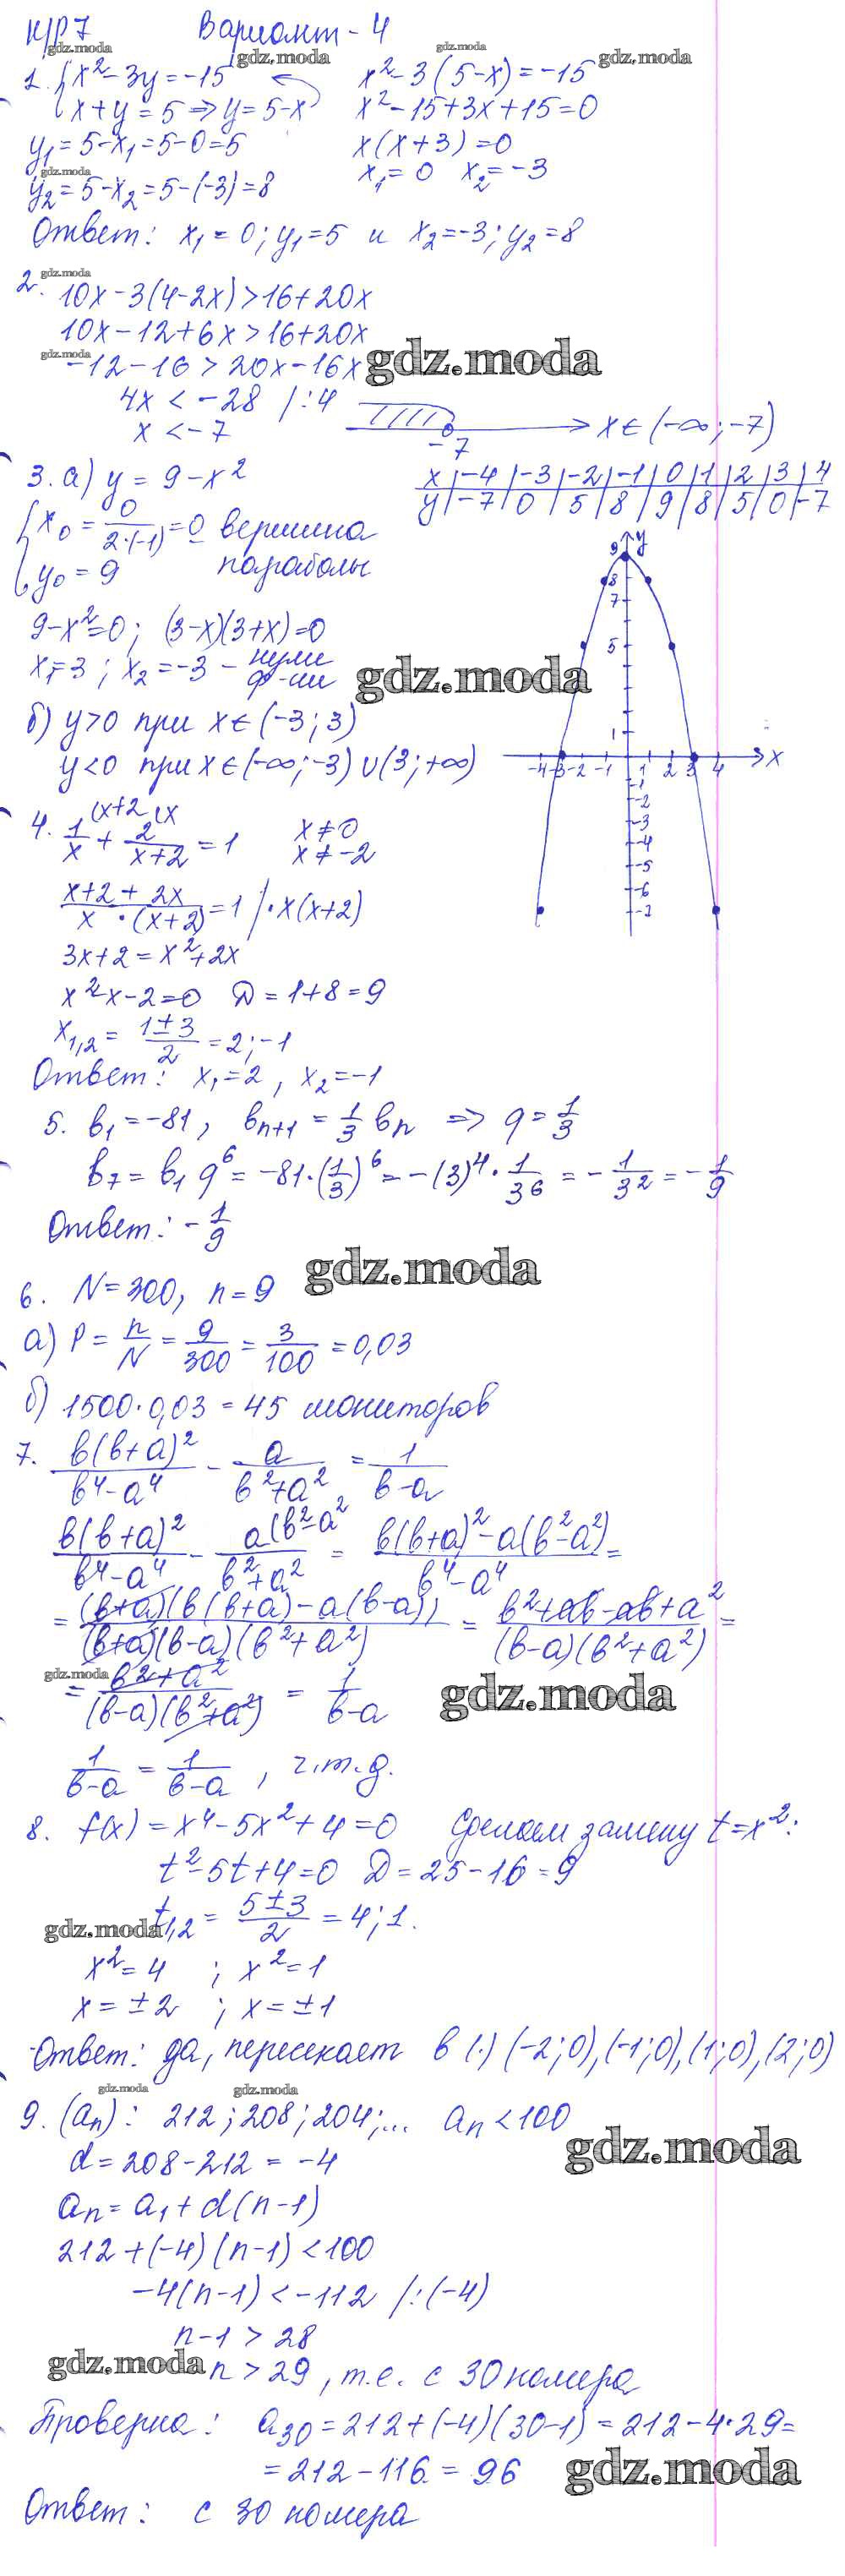 К/Р 7 Вариант - 4
gdz.moda gdz.moda gdz.moda gdz.moda
1. { x² - 3y = -15 x² - 3(5-x) = -15
x + y = 5 ⇒ y = 5-x x² - 15 + 3x + 15 = 0
y₁ = 5-x₁ = 5-0 = 5 x(x+3) = 0
gdz.moda x₁ = 0 x₂ = -3
y₂ = 5-x₂ = 5-(-3) = 8
Ответ: x₁ = 0; y₁ = 5 и x₂ = -3; y₂ = 8
gdz.moda
2. 10x - 3(4-2x) > 16 + 20x
10x - 12 + 6x > 16 + 20x
gdz.moda -12 - 16 > 20x - 16x gdz.moda
4x < -28 /:4
x < -7 -7 x ∈ (-∞; -7)
3. а) y = 9 - x² x | -4 | -3 | -2 | -1 | 0 | 1 | 2 | 3 | 4
y | -7 | 0 | 5 | 8 | 9 | 8 | 5 | 0 | -7
{ x₀ = 0/(2·(-1)) = 0 вершина
y₀ = 9 параболы
9 - x² = 0; (3-x)(3+x) = 0
x₁ = 3; x₂ = -3 - нули ф-ии
gdz.moda
б) y > 0 при x ∈ (-3; 3)
y < 0 при x ∈ (-∞; -3) ∪ (3; +∞)
y
9
8
7
5
1
-4 -3 -2 -1 1 2 3 4 x
-1
-2
-3
-4
-5
-6
-7
4. 1/x (x+2 + 2/(x+2) (x = 1 x ≠ 0
x ≠ -2
(x+2+2x)/(x·(x+2)) = 1 /·x(x+2)
3x + 2 = x² + 2x
x² - x - 2 = 0 D = 1 + 8 = 9
x₁,₂ = (1±3)/2 = 2; -1
Ответ: x₁ = 2, x₂ = -1
5. b₁ = -81, bₙ₊₁ = 1/3 bₙ ⇒ q = 1/3
b₇ = b₁ q⁶ = -81·(1/3)⁶ = -(3)⁴·1/3⁶ = -1/3² = -1/9
Ответ: -1/9
gdz.moda
6. N = 300, n = 9
а) P = n/N = 9/300 = 3/100 = 0,03
б) 1500·0,03 = 45 мониторов
7. b(b+a)²/(b⁴-a⁴) - a/(b²+a²) = 1/(b-a)
b(b+a)²/(b⁴-a⁴) - a(b²-a²/(b²+a²) = (b(b+a)²-a(b²-a²))/(b⁴-a⁴) =
= (b+a)(b(b+a)-a(b-a))/((b+a)(b-a)(b²+a²)) = (b²+ab-ab+a²)/((b-a)(b²+a²)) =
gdz.moda
= (b²+a²)/((b-a)(b²+a²)) = 1/(b-a) gdz.moda
1/(b-a) = 1/(b-a), ч.т.д.
8. f(x) = x⁴ - 5x² + 4 = 0 Сделаем замену t = x²:
t² - 5t + 4 = 0 D = 25 - 16 = 9
gdz.moda t₁,₂ = (5±3)/2 = 4; 1.
x² = 4 ; x² = 1
x = ±2 ; x = ±1
Ответ: да, пересекает в (·) (-2; 0), (-1; 0), (1; 0), (2; 0)
gdz.moda gdz.moda
9. (aₙ): 212; 208; 204; ... aₙ < 100
gdz.moda
d = 208 - 212 = -4
aₙ = a₁ + d(n-1)
212 + (-4)(n-1) < 100
-4(n-1) < -112 /:(-4)
n-1 > 28
gdz.moda n > 29, т.е. с 30 номера
Проверка: a₃₀ = 212 + (-4)(30-1) = 212 - 4·29 =
= 212 - 116 = 96 gdz.moda
Ответ: с 30 номера